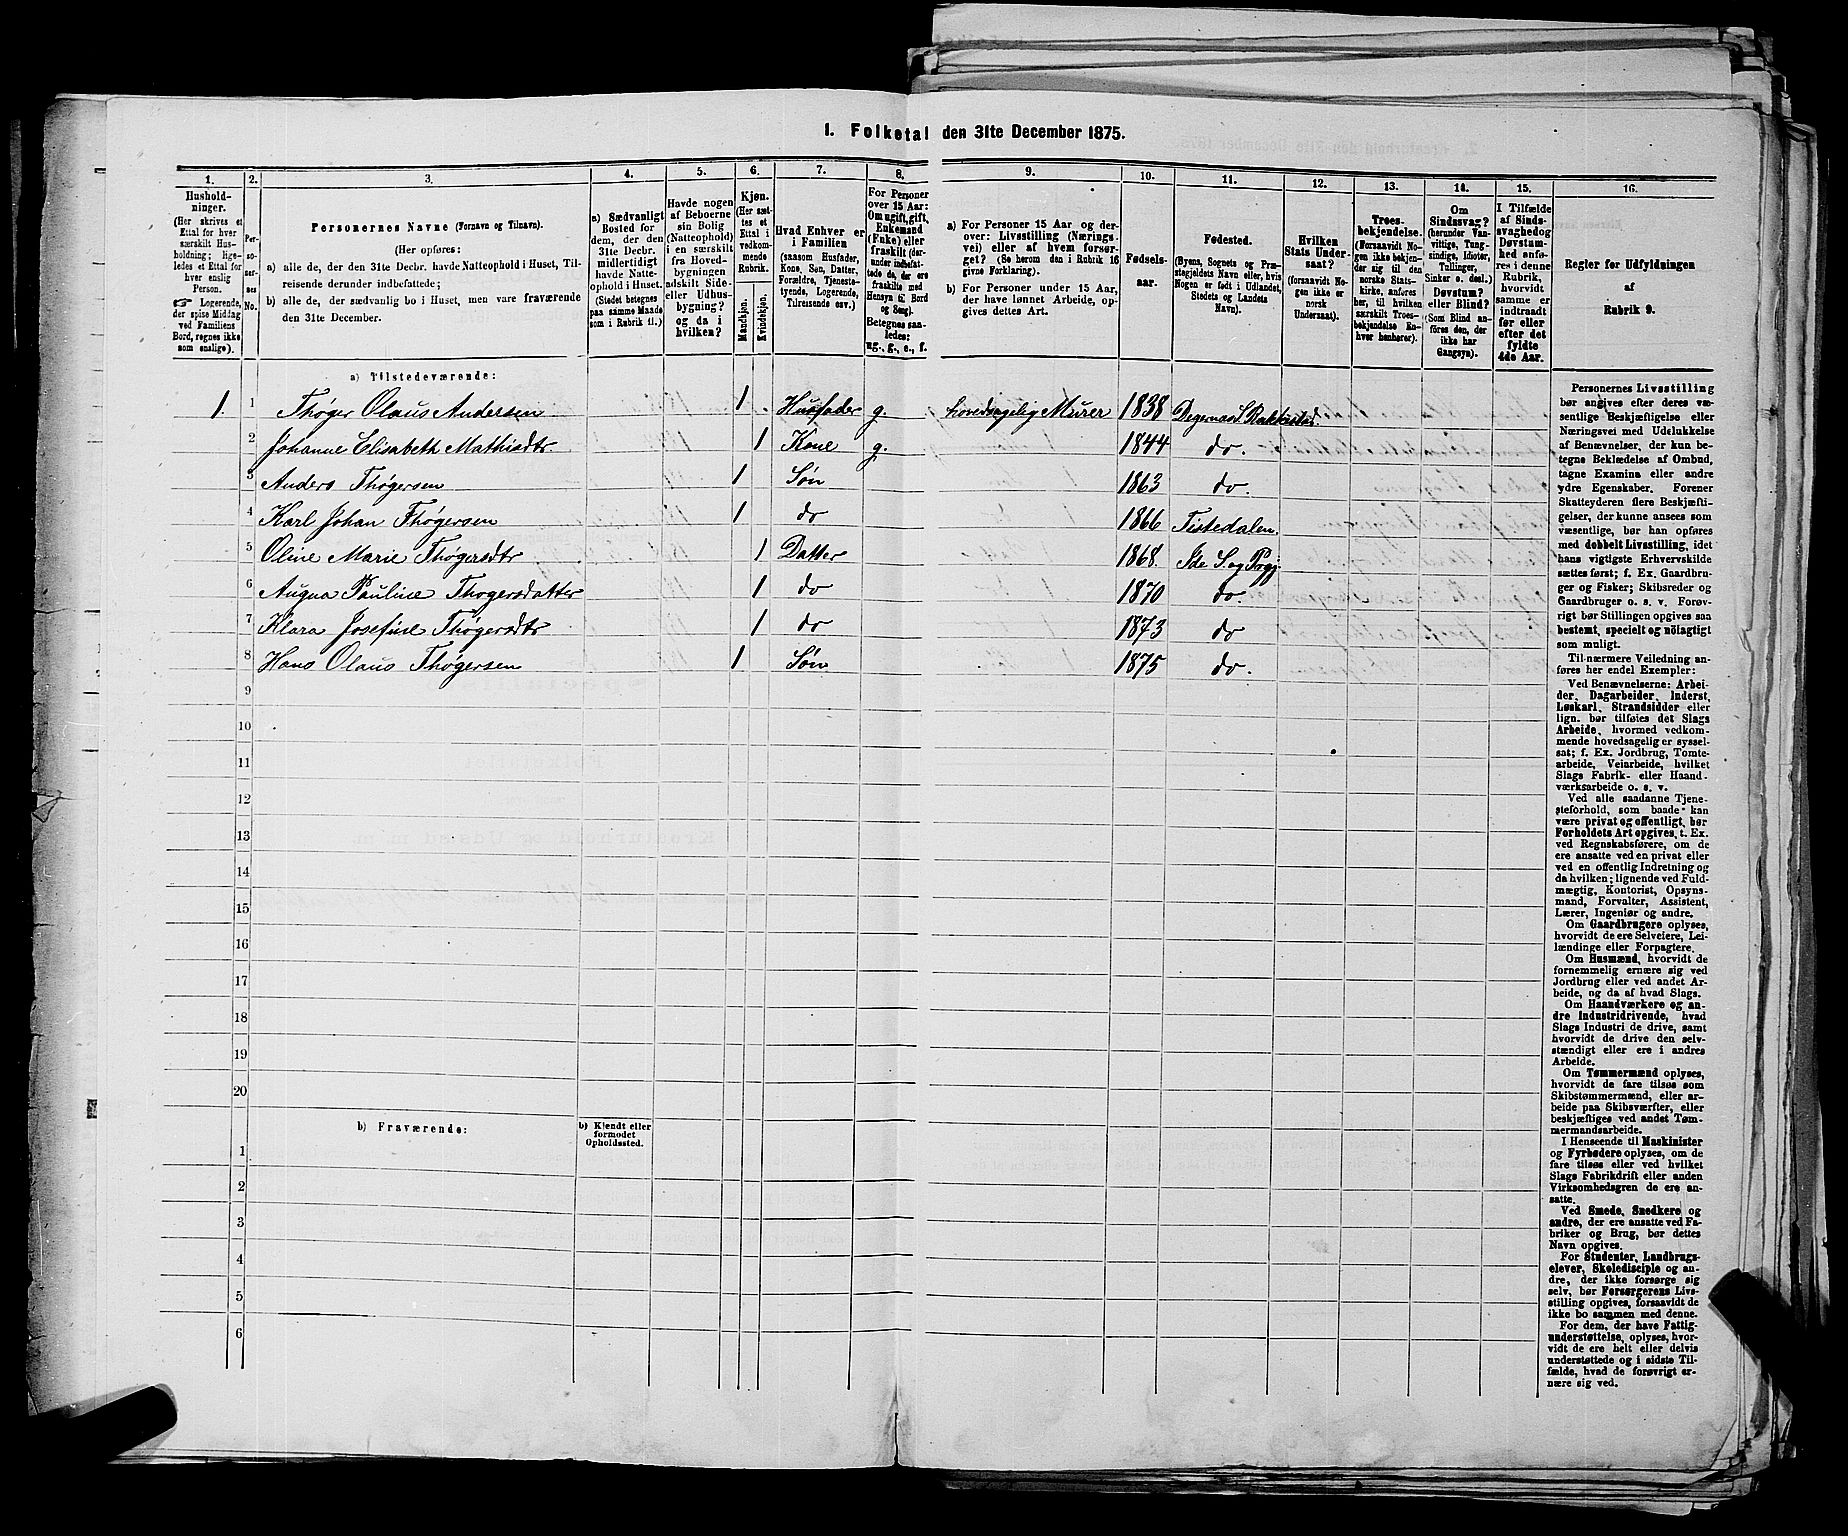 1. Folketal den 31te December 1875.
1.
2.
3.
4.
5.
6.
7.
8.
9.
10.
11.
12.
13.
14.
15.
16.
Hushold-
ninger.
(Her skrives et
Ettal for hver
særskilt Hus-
holdning; lige-
ledes et Ettal for
hver enslig
Person.
☞ Logerende,
der spise Middag
ved Familiens
Bord, regnes ikke
som enslige).
Per-
so-
ner-
nes
No.
Personernes Navne (Fornavn og Tilnavn).
(Her opføres:
a) alle de, der den 31te Decbr. havde Natteophold i Huset, Til-
reisende derunder indbefattede;
b) alle de, der sædvanlig bo i Huset, men vare fraværende
den 31te December.
a) Sædvanligt
Bosted for
dem, der den
31te Decbr.
midlertidigt
havde Natte-
ophold i Huset.
(Stedet betegnes
paa samme Maade
som i Rubrik 11.)
Havde nogen
af Beboerne
sin Bolig
(Natteophold)
i en særskilt
fra Hoved-
bygningen
adskilt Side-
eller Udhus-
bygning?
og da i
hvilken?
Kjøn.
(Her sæt-
tes et
Ettal i
vedkom-
mende
Rubrik.
Mandkjøn.
Kvindekjøn.
Hvad Enhver er
i Familien
(saasom Husfader,
Kone, Søn, Datter,
Forældre, Tjeneste-
tyende, Logerende,
Tilreisende osv.)
For Personer
over 15 Aar:
Om ugift, gift,
Enkemand
(Enke) eller
fraskilt (der-
under indbefat-
tede de, der ere
fraskilte med
Hensyn til Bord
og Seng).
Betegnes saa-
ledes:
ug., g., e., f.
a) For Personer 15 Aar og der-
over: Livsstilling (Nærings-
vei) eller af hvem forsør-
get? (Se herom den i Rubrik 16
givne Forklaring).
b) For Personer under 15 Aar,
der have lønnet Arbeide, op-
gives dettes Art.
Fødsels-
aar.
Fødested.
(Byens, Sognets og Præ-
stegjeldets Navn eller, hvis
Nogen er født i Udlandet,
Stedets og Landets
Navn).
Hvilken
Stats Under-
saat?
(forsaavidt No-
gen ikke er
norsk
Undersaat).
Troes-
bekjendelse.
(Forsaavidt No-
gen ikke bekjen-
der sig til den
norske Stats-
kirke, anføres
her, til hvilken
særskilt Troes-
bekjendelse En-
hver henhører).
Om
Sindssvag?
(herunder Van-
vittige, Tung-
sindige, Idioter,
Tullinger,
Sinker o. desl.)
Døvstum?
eller Blind?
(Som Blind an-
føres den, der
ikke har
Gangsyn).
I Tilfælde
af Sinds-
svaghed og
Døvstum-
hed anfø-
res i denne
Rubrik,
hvorvidt
samme er
indtraadt
før eller
efter det
fyldte
4de Aar.
Regler for Udfyldningen
af
Rubrik 9.
a) Tilstedeværende:
1. 1 Thøger Olaus Andersen 1 Husfader g. hovedsagelig Murer 1838 Degernæs S. Rakkestad.
2 Johanne Elisabeth Mathisdtr. 1 Kone g. 1844 do.
3 Anders Thøgersen 1 Søn 1863 do.
4 Karl Johan Thøgersen 1 do 1866 Tistedalen.
5 Oline Marie Thøgersdtr 1 Datter 1868. Ide S. og Prgj
6 Augna Pauline Thogersdatter 1 do 1870 do.
7 Klara Josefine Thøgersdtr 1 do 1873 do
8 Hans Olaus Thøgersen 1 Søn 1875 do.
9
10
11
12
13
14
15
16
17
18
19
20
b) Fraværende:
b) Kjendt eller
formodet
Opholdssted.
1
2
3
4
5
6
Personernes Livsstilling
bør angives efter deres væ-
sentlige Beskjæftigelse eller
Næringsvei med Udelukkelse
af Benævnelser, der kun be-
tegne Beklædelse af Ombud,
tagne Examina eller andre
ydre Egenskaber. Forener
Skatteyderen flere Beskjæfti-
gelser, der kunne ansees som
væsentlige, bør han opføres
med dobbelt Livsstilling, idet
hans vigtigste Erhvervskilde
sættes først; f. Ex. Gaardbru-
ger og Fisker; Skibsreder og
Gaardbruger o. s. v. Forøv-
rigt bør Stillingen opgives saa
bestemt, specielt og nöiagtigt
som muligt.
Til nærmere Veiledning an-
føres her endel Exempler:
Ved Benævnelserne: Arbei-
der, Dagarbeider, Inderst,
Løskarl, Strandsidder eller
lign. bør tilføies det Slags
Arbeide, hvormed vedkom-
mende hovedsagelig er syssel-
sat; f. Ex. Jordbrug, Tomte-
arbeide, Veiarbeide, hvilket
Slags Fabrik- eller Haand-
værksarbeide o. s. v.
Ved alle saadanne Tjene-
steforhold, som baade kan
være privat og offentligt, bør
Forholdets Art opgives, t. Ex.
ved Regnskabsførere, om de
ere ansatte ved en privat eller
ved en offentlig Indretning og
da hvilken; lignende ved Fuld-
mægtig, Kontorist, Opsyns-
mand, Forvalter, Assistent,
Lærer, Ingeniør og andre.
Om Gaardbrugere oplyses,
hvorvidt de ere Selveiere, Lei-
lændinge eller Forpagtere.
Om Husmænd, hvorvidt de
fornemmelig ernære sig ved
Jordbrug eller ved andet Ar-
beide, og da af hvad Slags.
Om Haandværkere og an-
dre Industridrivende, hvad
Slags Industri de drive, samt
hvorvidt de drive den selv-
stændigt eller ere i andres
Arbeide.
Om Tømmermænd oplyses,
hvorvidt de fare tilsøs som
Skibstømmermænd, eller ar-
beide paa Skibsværfter, eller
beskjæftiges ved andet Tøm-
mermandsarbeide.
I Henseende til Maskinister
og Fyrbødere oplyses, om de
fare tilsøs eller ved hvilket
Slags Fabrikdrift eller anden
Virksomhedsgren de ere an-
satte.
Ved Smede, Snedkere og
andre, der ere ansatte ved Fa-
briker og Brug, bør dettes
Navn opgives.
For Studenter, Landbrugs-
elever, Skoledisciple og an-
dre, der ikke forsørge sig
selv, bør Forsørgerens Livs-
stilling opgives, forsaavidt de
ikke bo sammen med denne.
For dem, der have Fattig-
understøttelse, oplyses, hvor-
vidt de ere helt eller delvis
understøttede og i sidste Til-
fælde, hvad de forøvrigt er-
nære sig ved.